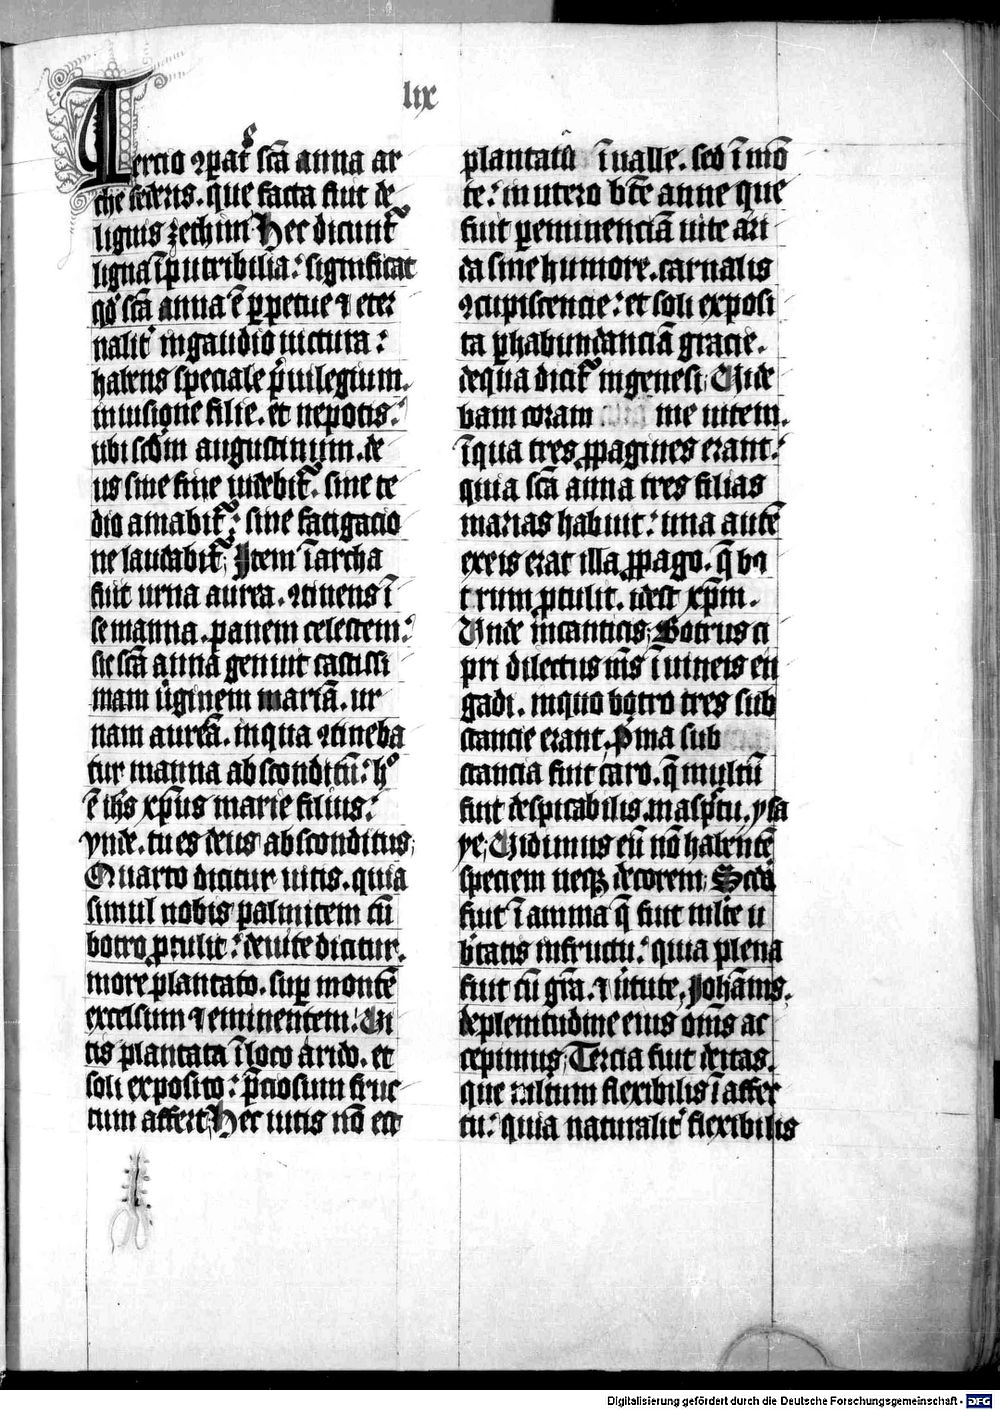 lix
Tercio ꝯpat᷑ᷤ scā anna ar
che federis. que facta fuit de
lignis zechim Hec dicunt᷑
ligna īputribilia. significat
qd̓ scā anna ē ꝑpetue ⁊ eter
nalit᷑ in gaudio uictura:
habens speciale p̓uilegium.
in uisione filie. et nepotis:
ubi scdm̄ augustinum. de
us sine fine uidebit᷑. sine te
dio amabit᷑: sine fatigacio
ne laudabit᷑; Item ī archa
fuit urna aurea. ꝯtinens ī
se manna. panem celestem:
sic scā anna genuit castissi
mam ūginem mariā. ur
nam aureā. in qua ꝯtineba
tur manna absconditū: h°
ē ih̄s xp̄us marie filius:
vnde. tu es deus absconditus;
Quarto dicitur uitis. quia
simul nobis palmitem cū
botro ꝓtulit: de uite dicitur.
more plantato. suꝑ montē
excelsum ⁊ eminentem: Ui
tis plantata ī loco arido. et
soli exposito: p̄ciosum fruc
tum affert; Hec uitis nō est
plantata ī ualle. sed ī mō
te: in utero bt̄e anne que
fuit ꝑ eminenciā uite ari
da sine humore. carnalis
ꝯcupiscencie: et soli exposi
ta ꝑ habundanciā gracie.
de qua dicit᷑ in genesi; Uide
bam coram me uitem.
ī qua tres ꝓpagines erant:
quia scā anna tres filias
marias habuit: una autē
ex eis erat illa ꝓpago. q̄ bo
trum ꝓtulit. idest xp̄m.
Unde in canticis; Botrus ci
pri dilectus m̄s ī uineis en
gadi. in quo botro tres sub
stancie erant. P̓ma sub
stancia fuit caro. q̄ multū
fuit despicabilis. in asp̄ctu. ysa
ye; Uidimus eū nō habentē
speciem neqꝫ decorem; Scda
fuit ī anima q̄ fuit mlt̄e u
b̄tatis in fructu: quia plena
fuit cū gr̄a. ⁊ ūtute, Joha̅nis.
de plenitudine eius om̄s ac
cepimus; Tercia fuit deitas.
que multum flexibilis ī affec
tu: quia naturalit᷑ flexibilis
Digitalisierung gefördert durch die Deutsche Forschungsgemeinschaft - DFG